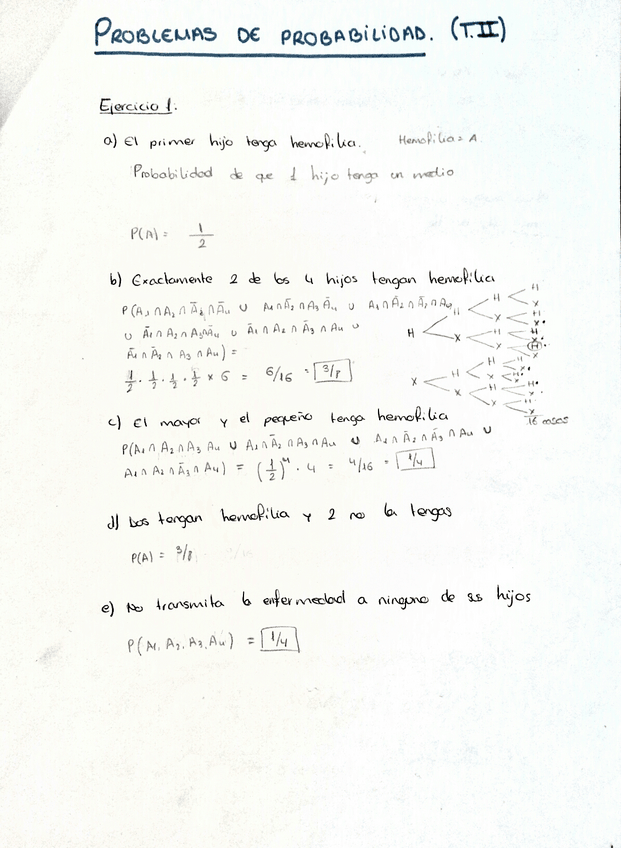 PROBLEMAS DE PROBABILIDAD. (T.II)
Ejercicio 1.
a) El primer hijo tenga hemofilia. Hemofilia = A
Probabilidad de que 1 hijo tenga un medio
P(A) = 1/2
b) Exactamente 2 de los 4 hijos tengan hemofilia
P(A₁ ∩ A₂ ∩ Ā₃ ∩ Ā₄ ∪ A₁ ∩ Ā₂ ∩ A₃ Ā₄ ∪ A₁ ∩ Ā₂ ∩ Ā₃ ∩ A₄
∪ Ā₁ ∩ A₂ ∩ A₃ ∩ Ā₄ ∪ Ā₁ ∩ A₂ ∩ Ā₃ ∩ A₄ ∪
Ā₁ ∩ Ā₂ ∩ A₃ ∩ A₄) =
1/2 · 1/2 · 1/2 · 1/2 × 6 = 6/16 = 3/8
H H H H
X
X H
X
X H H
X
X H
X
X H H H
X
X H
X
X H H
X
X H
X
16 casos
c) El mayor y el pequeño tenga hemofilia
P(A₁ ∩ A₂ ∩ A₃ A₄ ∪ A₁ ∩ Ā₂ ∩ A₃ ∩ A₄ ∪ A₁ ∩ Ā₂ ∩ Ā₃ ∩ A₄ ∪
A₁ ∩ A₂ ∩ Ā₃ ∩ A₄) = (1/2)⁴ · 4 = 4/16 = 1/4
d) Dos tengan hemofilia y 2 no la tengas
P(A) = 3/8
e) No transmita la enfermedad a ninguno de ss hijos
P(A₁, A₂, A₃, A₄) = 1/4